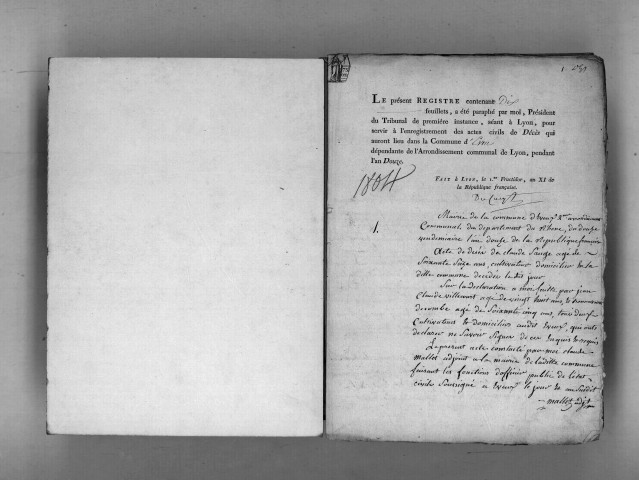 Le présent Registre contenant Dix
feuillets, a été paraphé par moi, Président
du Tribunal de première instance, séant à Lyon, pour
servir à l'enregistrement des actes civils de Décès qui
auront lieu dans la Commune d'
dépendante de l'Arrondissement communal de Lyon, pendant
l'an Douze.
Fait à Lyon, le 1.er Fructidor, an XI de
la République française.
1804
1.
Mairie de la commune d'
Communal du departement du Rhone, du douze
vendemiaire l'an douze de la Republique francaise
Acte de décés de claude age de
Soixante Seize ans, cultivateur domicilier a la
ditte commune decedée le dis jour
Sur la declaration a moi faitte par jean
Claude villecourt age de vingt huit ans, &
decombe age de Soixante cinq ans, tous deux
Cultivateurs & domiciliers audit qui ont
declarer ne Savoir Signer de ce Enquis & requis
Le present acte constaté par moi claude
mallot adjoint a la mairie de laditte commune
faisant les fonctions d'officier public de letat
civile Soussigné a le jour & an susdit
mallot adjt